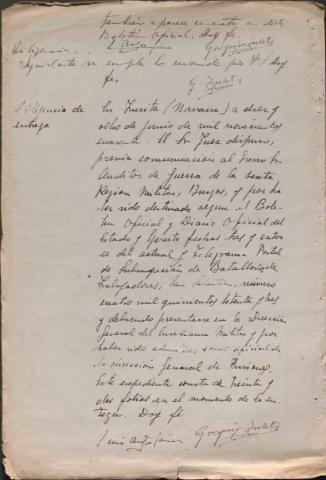 también aparece en este
Boletín Oficial. Doy fe.
Diligencia.
Seguidamente se cumple lo mandado por S.S. doy
fe.
Diligencia de
entrega
En Zurita (Navarra) a diez y
ocho de junio de mil novecientos
cuarenta. El Sr. Juez dispuso,
previa comunicación al Ilmo Sr.
Auditor de Guerra de la sexta
Región Militar, Burgos, y por ha
ber sido destinado según el Bole-
tín Oficial y Diario Oficial del
Estado y Ejército fechas tres y cator
ce del actual y telegrama Postal
de Subinspección de Batallones de
Trabajadores, San Sebastián, número
cuatro mil quinientos setenta y tres
y debiendo presentarse en la Dirección
General del Militar y por
haber sido admitido como oficial de
la dirección General de Prisiones.
Este expediente consta de treinta y
dos folios en el momento de la en-
trega. Doy fe
Luis
Gregorio